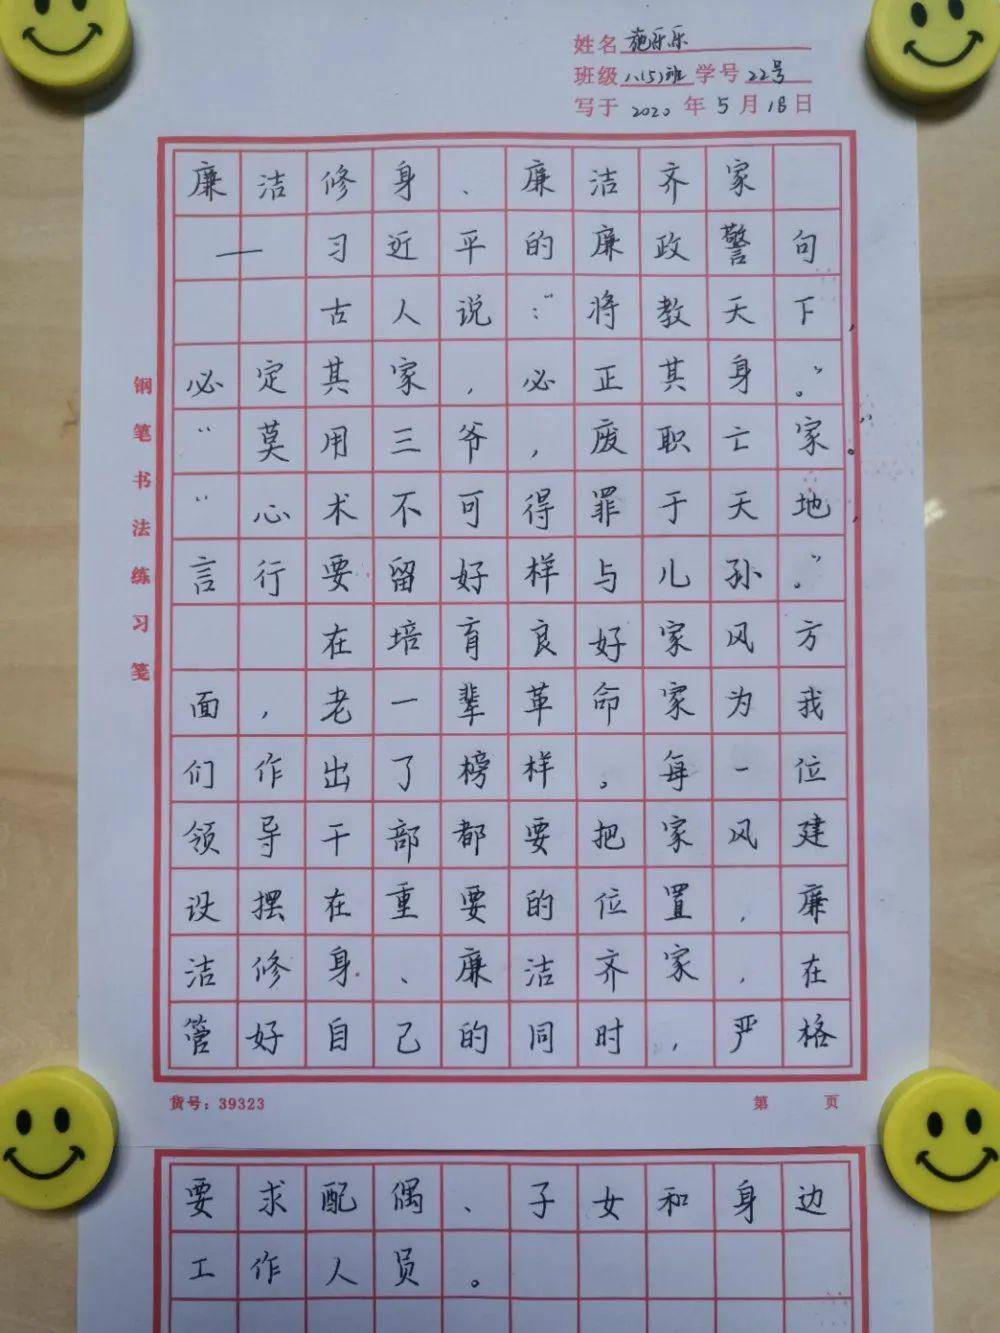 姓名 施乐乐
班级 八(5)班 学号 22号
写于 2020 年 5 月 18 日
廉洁修身、廉洁齐家
——习近平的廉政警句
古人说:“将教天下,
必定其家,必正其身。”
“莫用三爷,废职亡家。”
“心术不可得罪于天地,
言行要留好样与儿孙。”
在培育良好家风方
面,老一辈革命家为我
们作出了榜样。每一位
领导干部都要把家风建
设摆在重要的位置,廉
洁修身、廉洁齐家,在
管好自己的同时,严格
钢笔书法练习笺
货号:39323
第 页
要求配偶、子女和身边
工作人员。